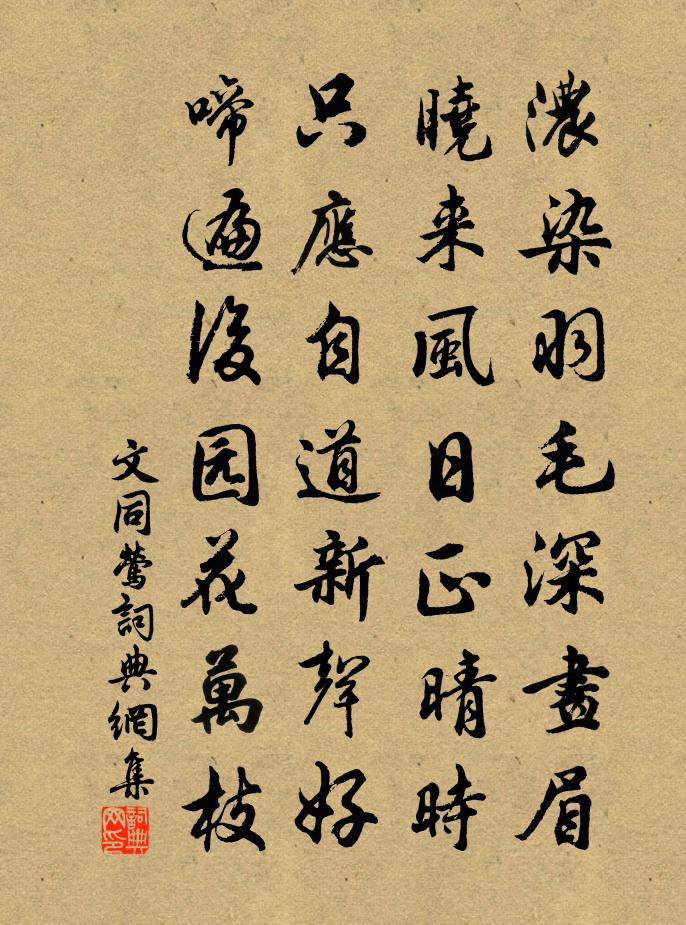 濃染羽毛深畫眉
曉来風日正晴時
只應自道新聲好
啼遍後园花萬枝
文同鶯詞典網集
詞典网印